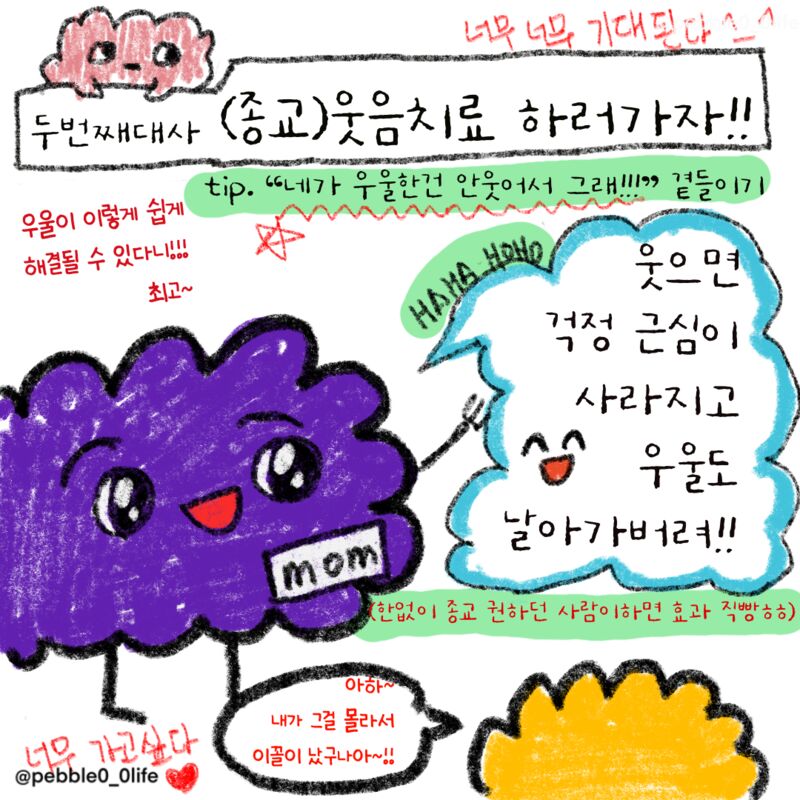 너무 너무 기대된다 ^_^
두번째대사 (종교)웃음치료 하러가자!!
tip. “네가 우울한건 안웃어서 그래!!!” 곁들이기
우울이 이렇게 쉽게
해결될 수 있다니!!!
최고~
HAHA HOHO
웃으면
걱정 근심이
사라지고
우울도
날아가버려!!
mom
(한없이 종교 권하던 사람이하면 효과 직빵ㅎㅎ)
아하~
내가 그걸 몰라서
이꼴이 났구나아~!!
너무 가고싶다
@pebble0_0life